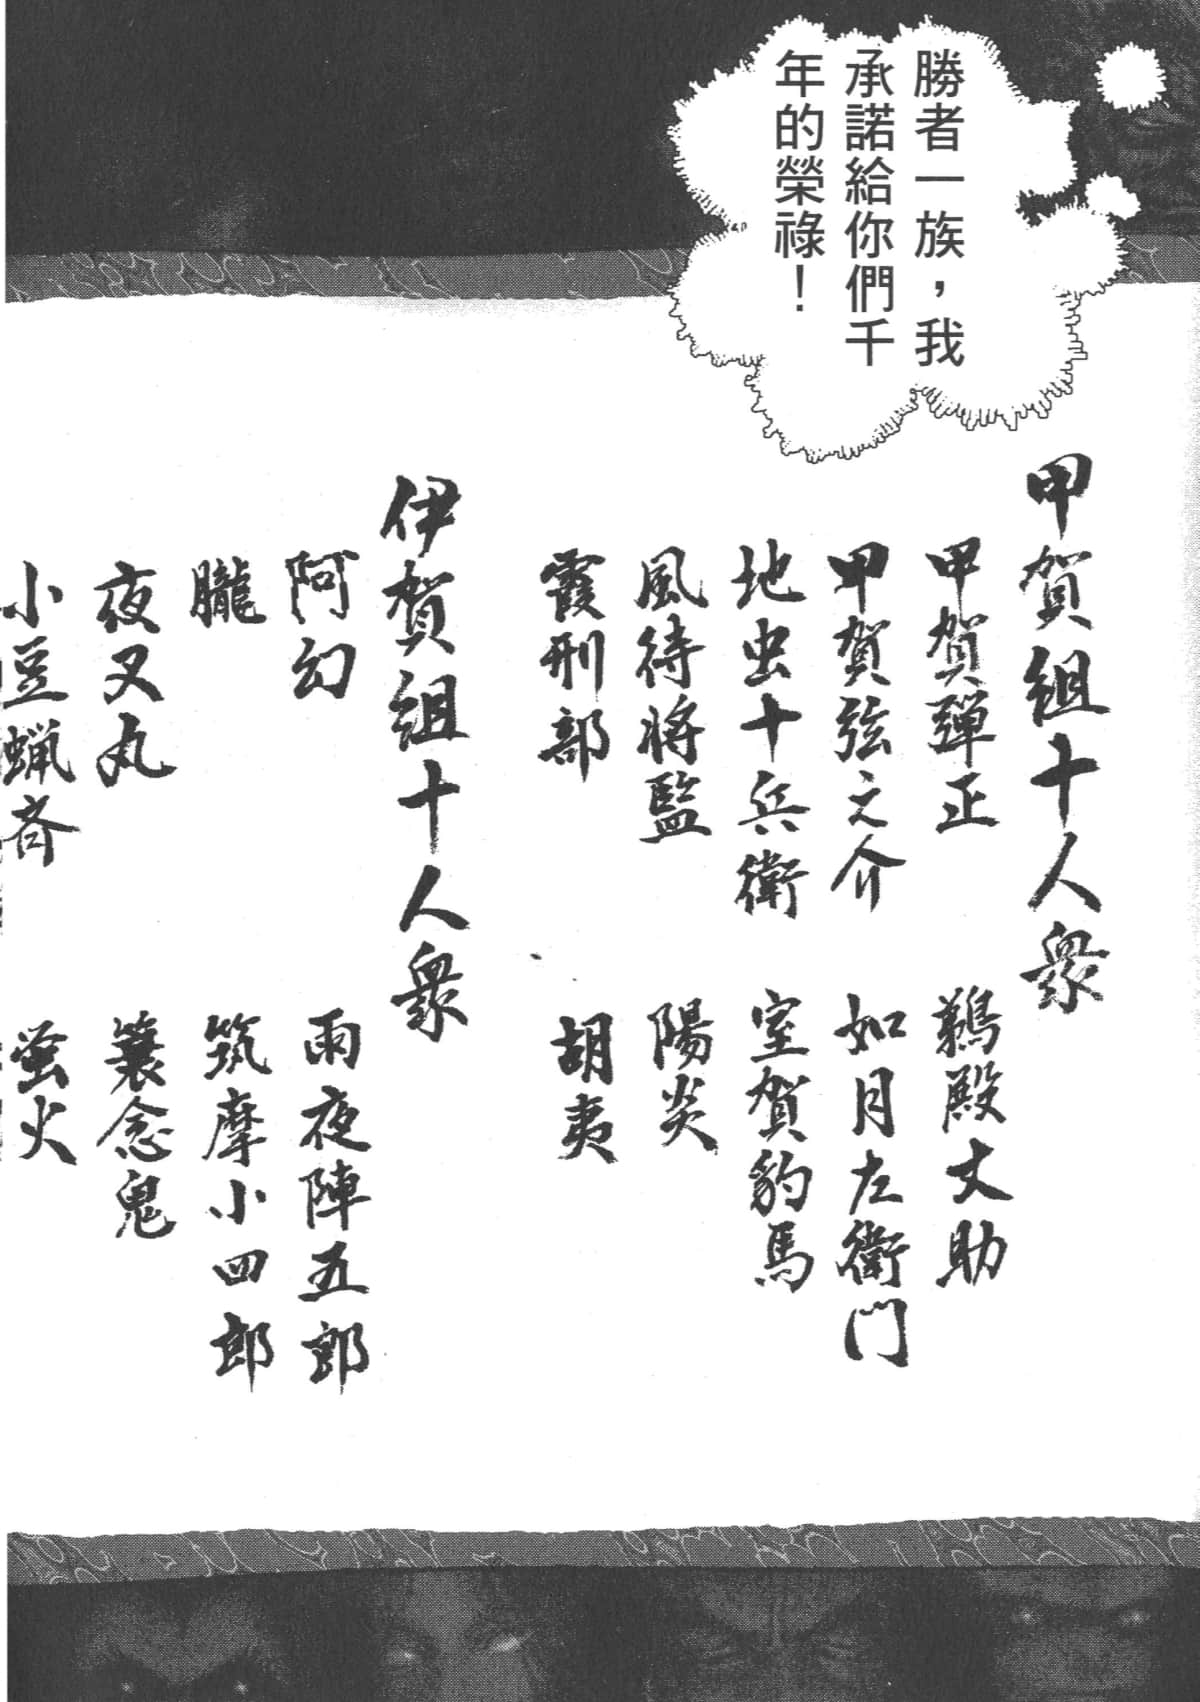 勝者一族，我
承諾給你們千
年的榮祿！
甲賀組十人衆
甲賀彈正
甲賀弦之介
地虫十兵衛
風待将監
霞刑部
鵜殿丈助
如月左衛門
室賀豹馬
陽炎
胡夷
伊賀組十人衆
阿幻
朧
夜叉丸
小豆蝋斉
雨夜陣五郎
筑摩小四郎
簑念鬼
蛍火